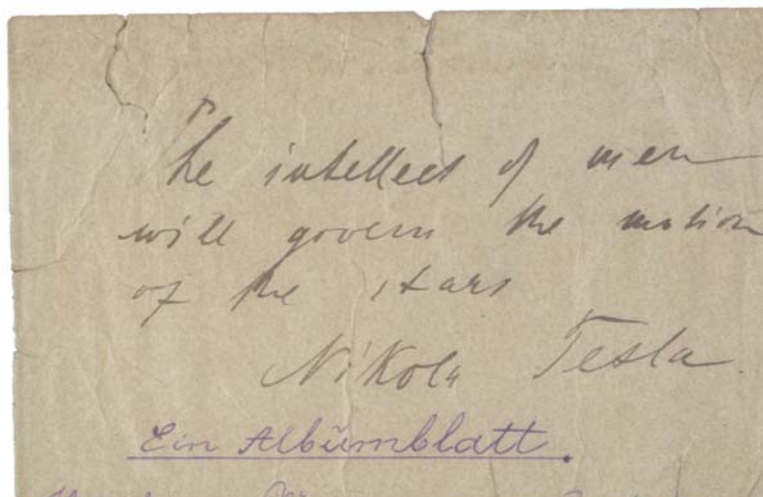 The intellect of men
will govern the motion
of the stars
Nikola Tesla.
Ein Albumblatt.